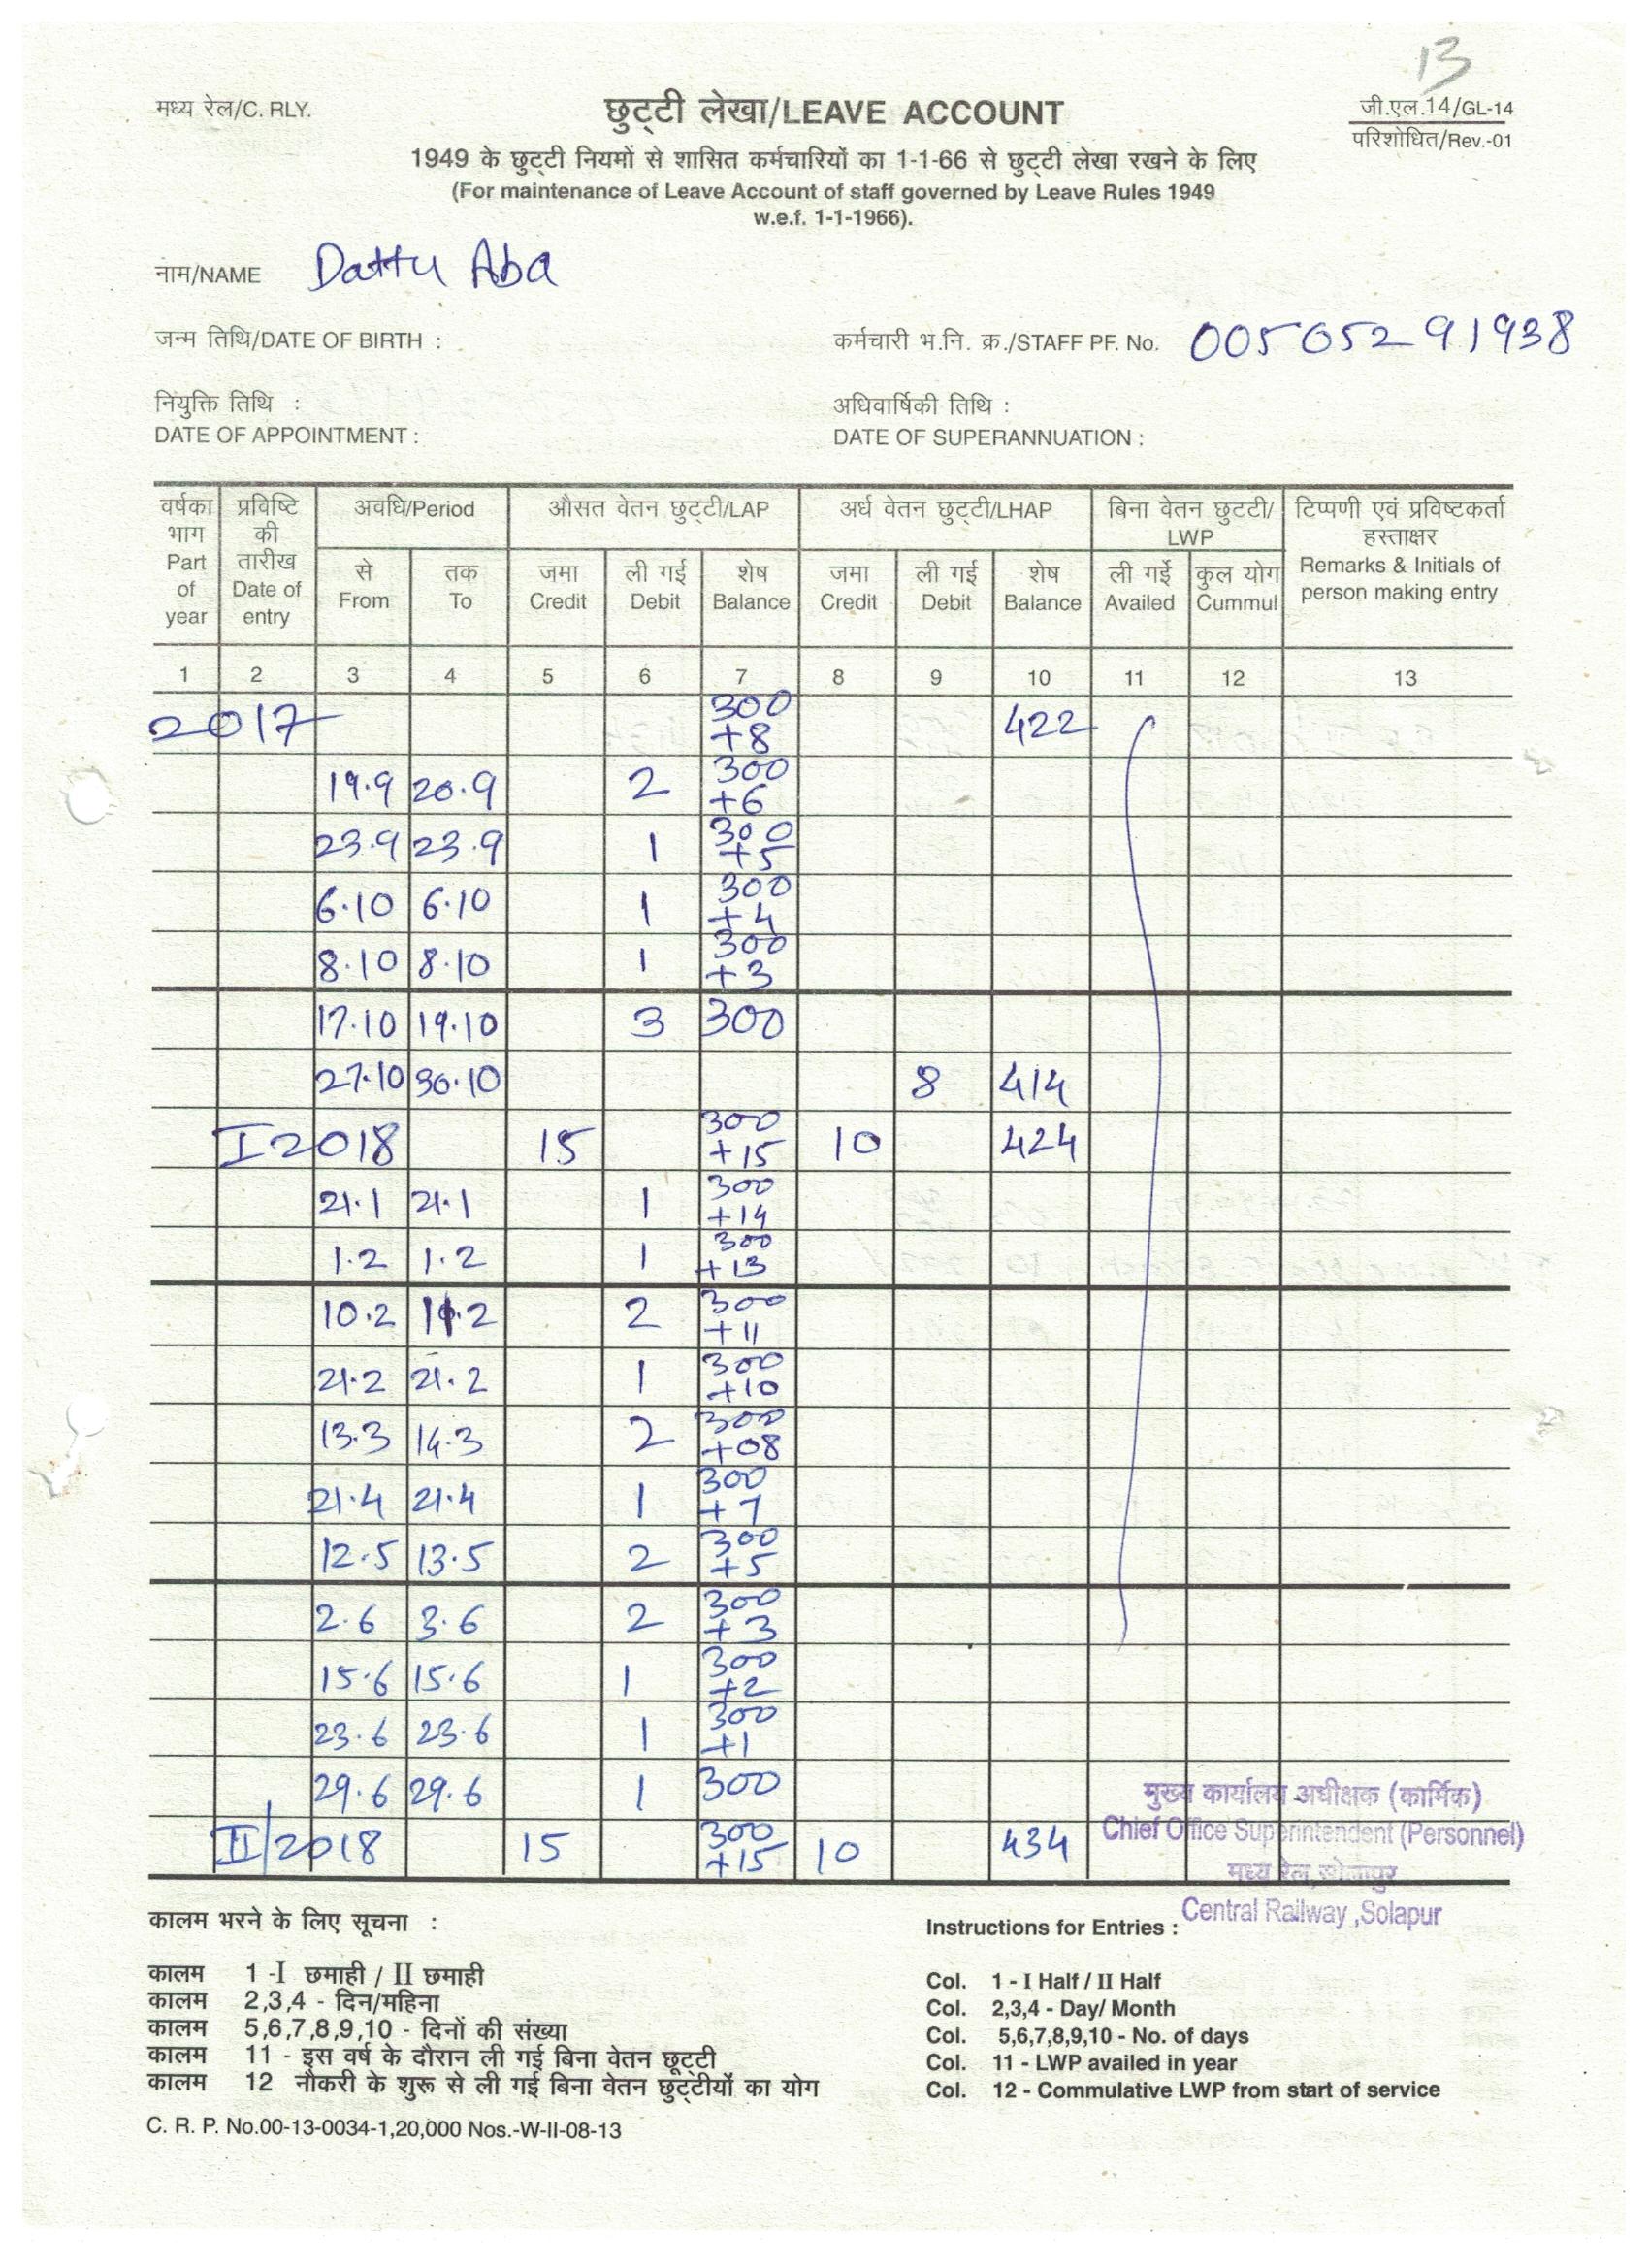 13
मध्य रेल/C. RLY.
छुट्टी लेखा/LEAVE ACCOUNT
जी.एल.14/GL-14
परिशोधित/Rev.-01
1949 के छुट्टी नियमों से शासित कर्मचारियों का 1-1-66 से छुट्टी लेखा रखने के लिए
(For maintenance of Leave Account of staff governed by Leave Rules 1949
w.e.f. 1-1-1966).
नाम/NAME Dattu Aba
जन्म तिथि/DATE OF BIRTH :
कर्मचारी भ.नि. क्र./STAFF PF. No. 00505291938
नियुक्ति तिथि :
DATE OF APPOINTMENT :
अधिवार्षिकी तिथि :
DATE OF SUPERANNUATION :
वर्षका भाग Part of year
प्रविष्टि की तारीख Date of entry
अवधि/Period
औसत वेतन छुट्टी/LAP
अर्ध वेतन छुट्टी/LHAP
बिना वेतन छुटटी/ LWP
टिप्पणी एवं प्रविष्टकर्ता हस्ताक्षर Remarks & Initials of person making entry
से From तक To जमा Credit ली गई Debit शेष Balance जमा Credit ली गई Debit शेष Balance ली गई Availed कुल योग Cummul
1 2 3 4 5 6 7 8 9 10 11 12 13
2017 300 +8 422
19.9 20.9 2 300 +6
23.9 23.9 1 300 +5
6.10 6.10 1 300 +4
8.10 8.10 1 300 +3
17.10 19.10 3 300
27.10 30.10 8 414
I 2018 15 300 +15 10 424
21.1 21.1 1 300 +14
1.2 1.2 1 300 +13
10.2 11.2 2 300 +11
21.2 21.2 1 300 +10
13.3 14.3 2 300 +08
21.4 21.4 1 300 +7
12.5 13.5 2 300 +5
2.6 3.6 2 300 +3
15.6 15.6 1 300 +2
23.6 23.6 1 300 +1
29.6 29.6 1 300
II/2018 15 300 +15 10 434
मुख्य कार्यालय अधीक्षक (कार्मिक)
Chief Office Superintendent (Personnel)
मध्य रेल, सोलापुर
Central Railway ,Solapur
कालम भरने के लिए सूचना :
कालम 1 -I छमाही / II छमाही
कालम 2,3,4 - दिन/महिना
कालम 5,6,7,8,9,10 - दिनों की संख्या
कालम 11 - इस वर्ष के दौरान ली गई बिना वेतन छूट्टी
कालम 12 नौकरी के शुरू से ली गई बिना वेतन छुट्टीयों का योग
Instructions for Entries :
Col. 1 - I Half / II Half
Col. 2,3,4 - Day/ Month
Col. 5,6,7,8,9,10 - No. of days
Col. 11 - LWP availed in year
Col. 12 - Commulative LWP from start of service
C. R. P. No.00-13-0034-1,20,000 Nos.-W-II-08-13